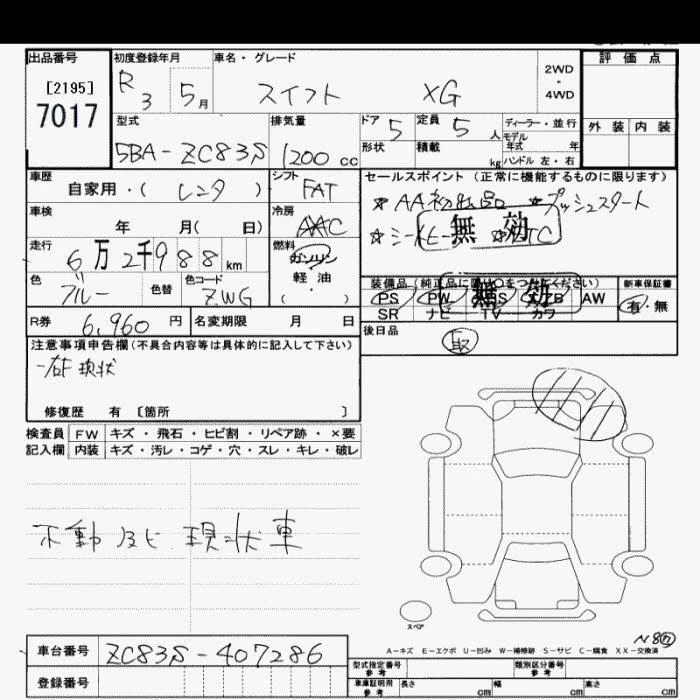 出品番号
[2195]
7017
初度登録年月
R 3 5月
車名・グレード
スイフト XG
2WD
・
4WD
評価点
外装 内装
型式
5BA-ZC83S
排気量
1200 cc
ドア 5
形状
定員 5 人
積載 kg
ディーラー・並行
モデル年式 年
ハンドル 左・右
車歴
自家用・( レンタ )
シフト
FAT
車検
年 月( 日)
冷房
AAC
走行
6万2千988 km
燃料
ガソリン
軽油
( )
色
ブルー
色替
色コード
ZWG
R券 6,960 円
名変期限 月 日
セールスポイント (正常に機能するものに限ります)
☆AA初出品 ☆プッシュスタート
無効
装備品 (純正品に限り○をつけてください)
無効
PS PW AW
SR ナビ TV カワ
新車保証書
有・無
後日品
取
注意事項申告欄(不具合内容等は具体的に記入して下さい)
現状
修復歴 有 [箇所 ]
検査員 FW キズ・飛石・ヒビ割・リペア跡・×要
記入欄 内装 キズ・汚レ・コゲ・穴・スレ・キレ・破レ
不動及ビ 現状車
スペア
A-キズ E-エクボ U-凹み W-補修跡 S-サビ C-腐食 XX-交換済
車台番号 ZC83S-407286
登録番号
型式指定番号
参考
類別区分番号
参考
車庫証明用
参考
長さ cm 幅 cm 高さ cm